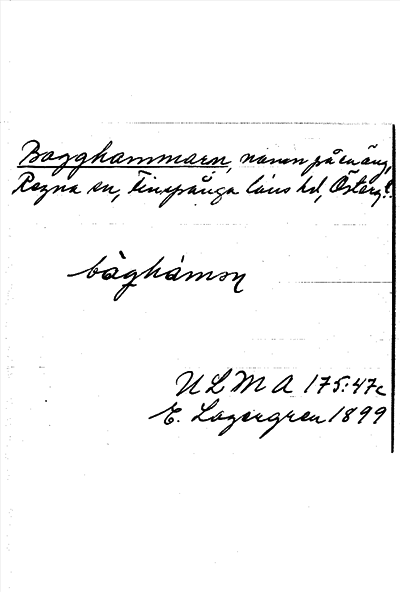 Bagghammarn, namn på en äng,
Regna sn, Finspånga läns hd, Österg.
bàghámən
ULMA 175:47c
E. Lagergren 1899